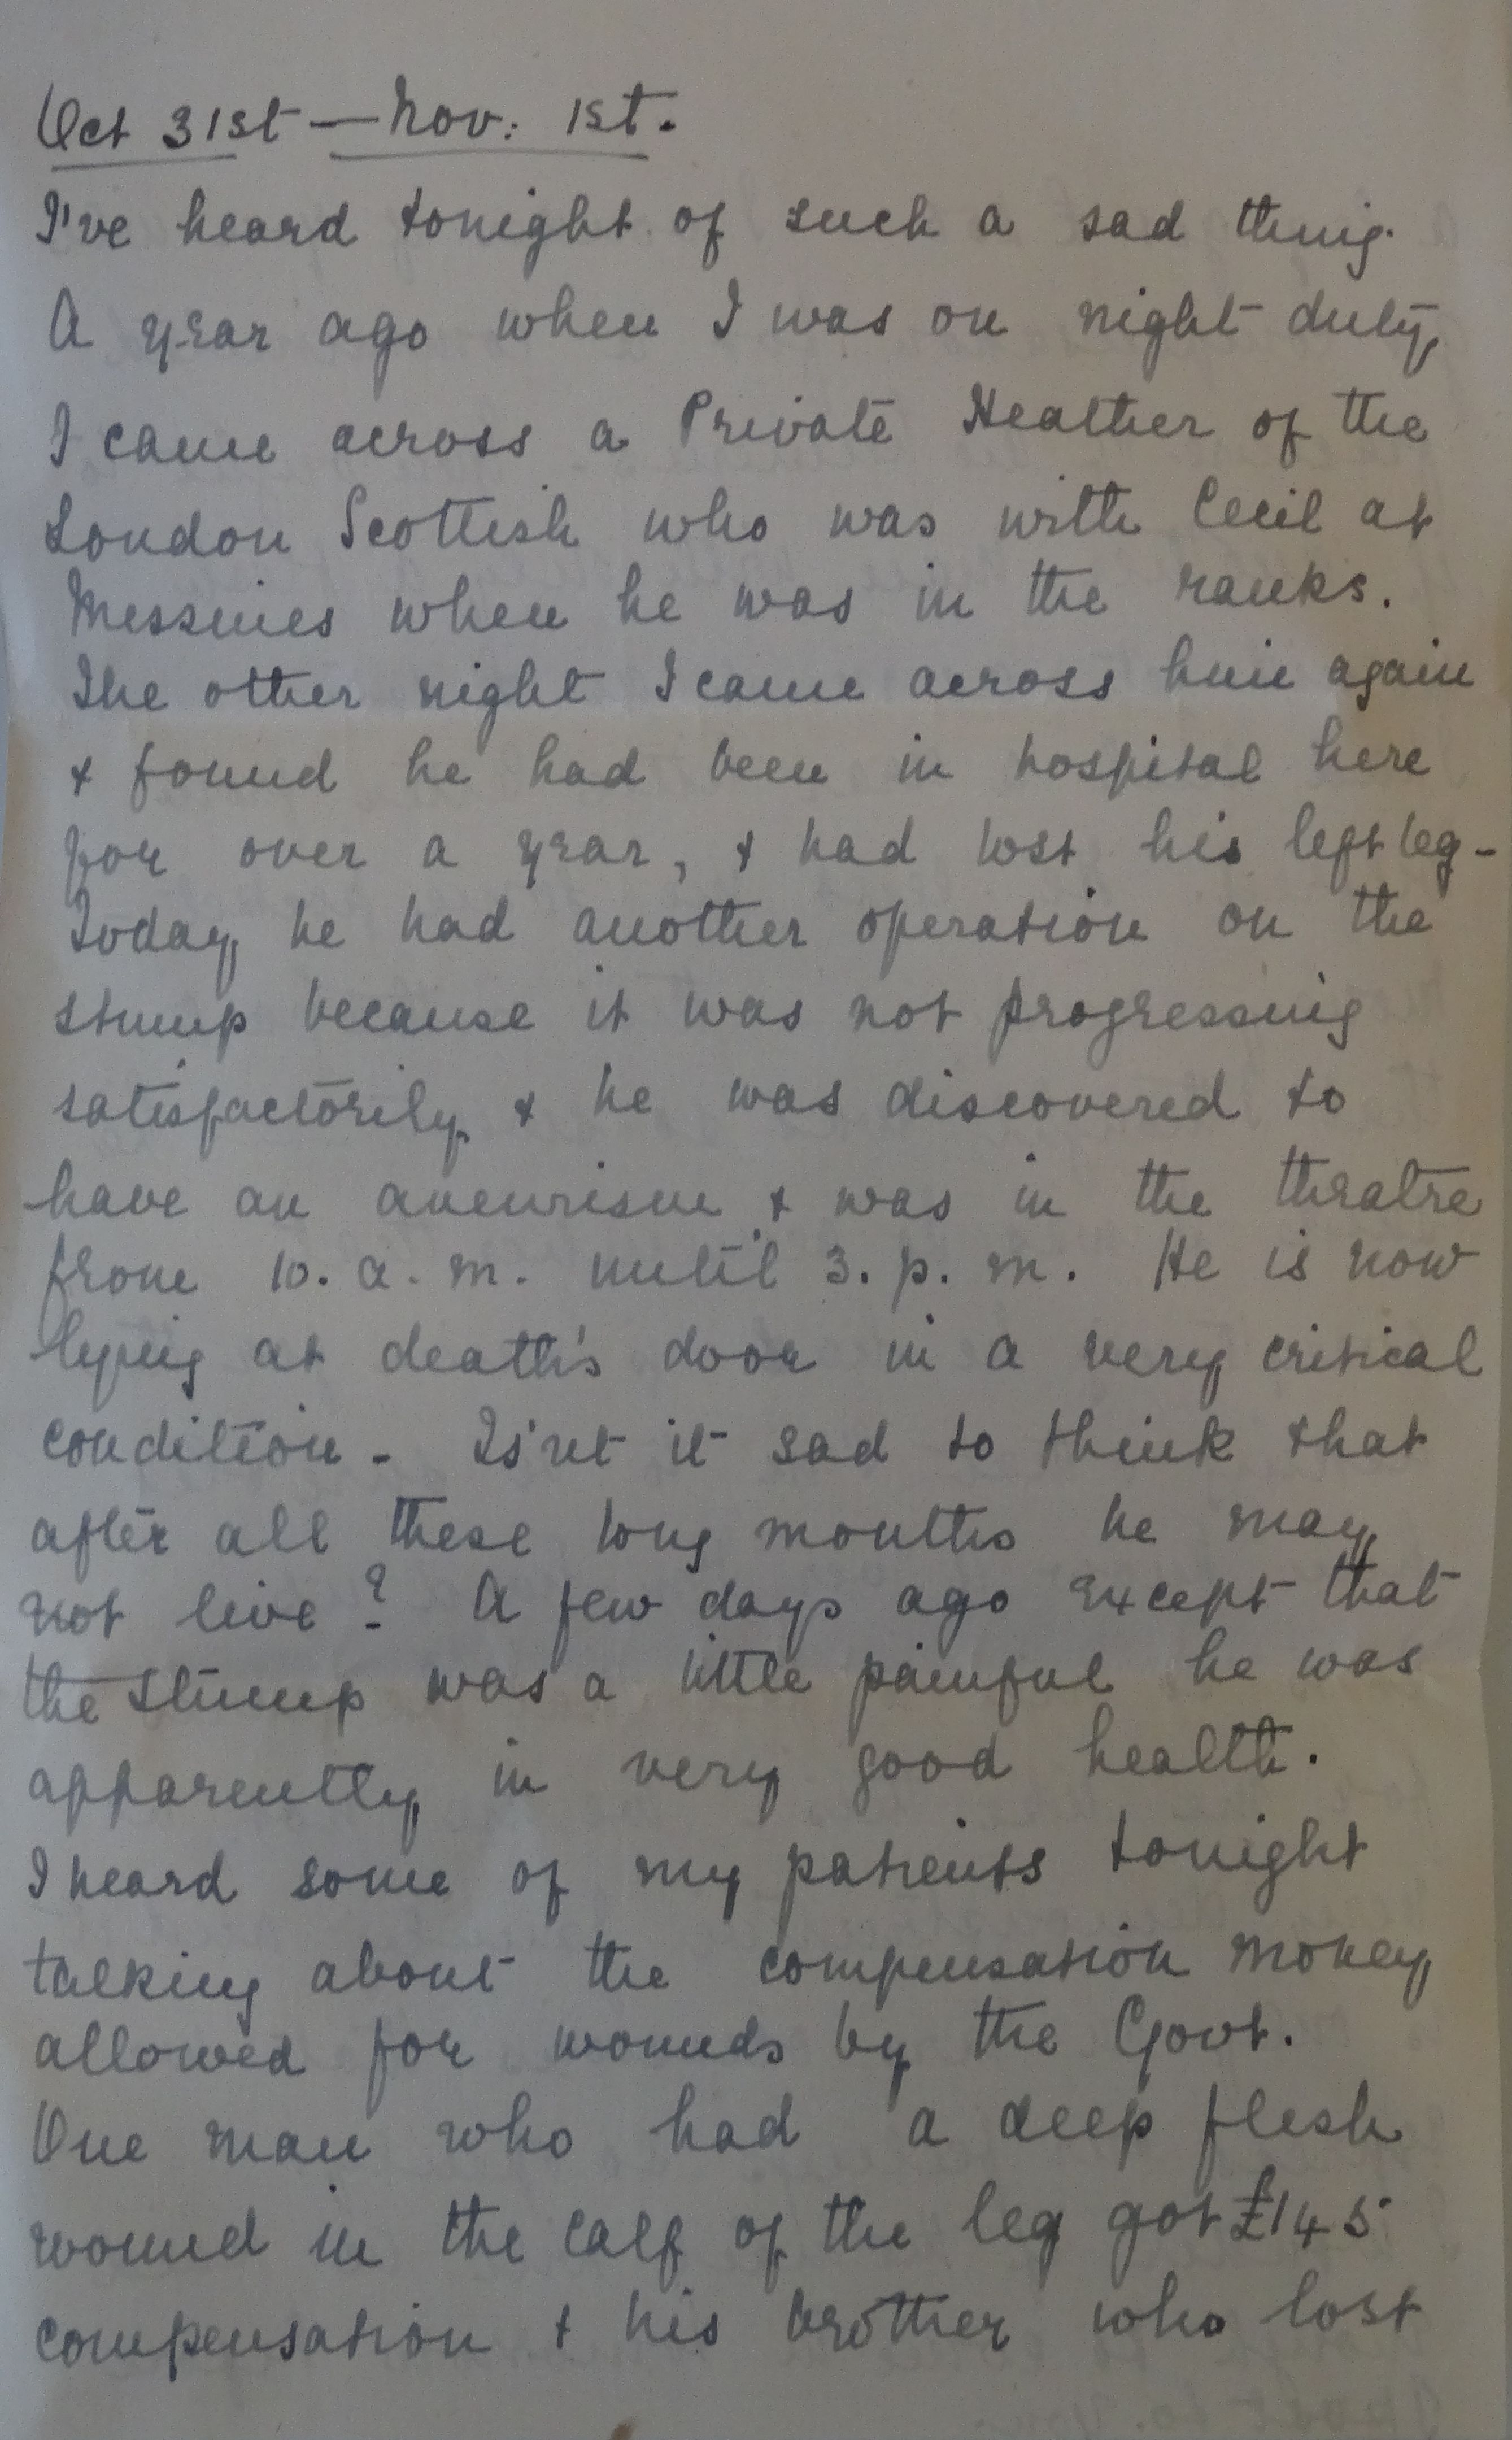 Oct 31st — Nov: 1st.
I've heard tonight of such a sad thing.
A year ago when I was on night duty,
I came across a Private Heather of the
London Scottish who was with Cecil at
Messines when he was in the ranks.
The other night I came across him again
& found he had been in hospital here
for over a year, & had lost his left leg -
Today he had another operation on the
stump because it was not progressing
satisfactorily & he was discovered to
have an aneurism & was in the theatre
from 10. a. m. until 3. p. m. He is now
lying at death's door in a very critical
condition - Is'nt it sad to think that
after all these long months he may
not live? A few days ago except that
the stump was a little painful he was
apparently in very good health.
I heard some of my patients tonight
talking about the compensation money
allowed for wounds by the Govt.
One man who had a deep flesh
wound in the calf of the leg got £145
compensation & his brother who lost